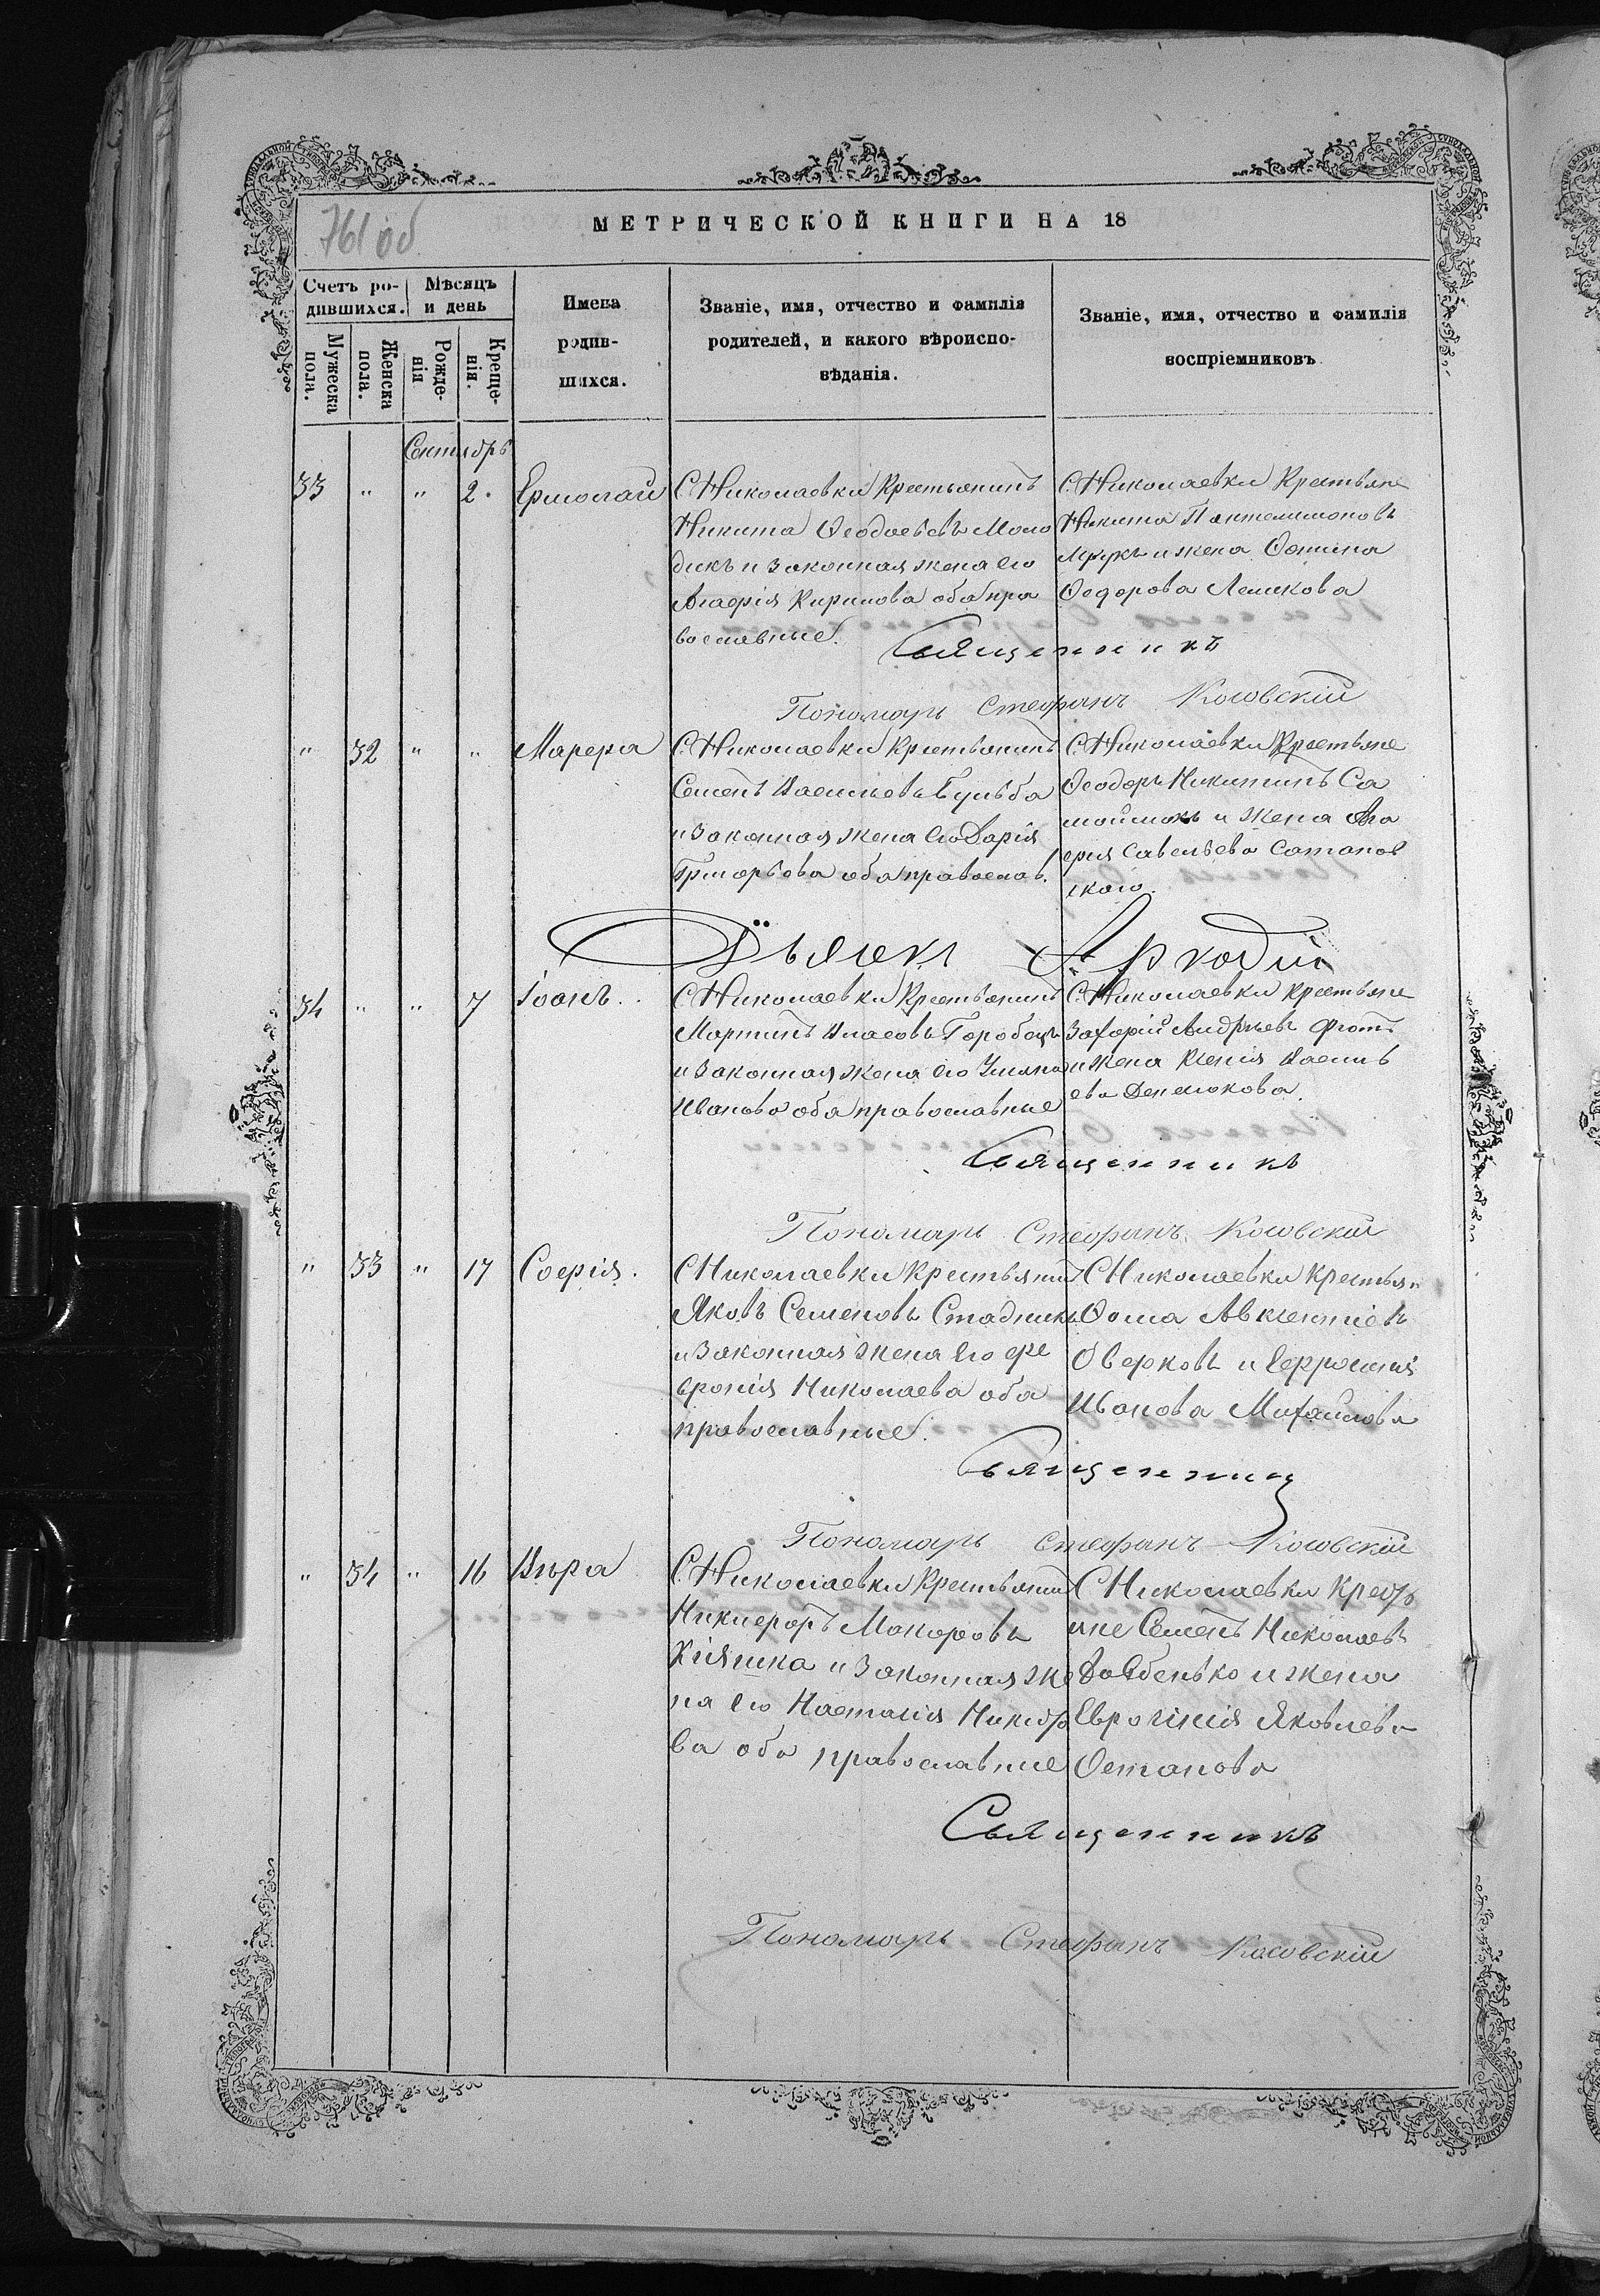 761 об
МЕТРИЧЕСКОЙ КНИГИ НА 18
Счетъ ро-
дившихся.
Мѣсяцъ
и день
Мужеска
пола.
Женска
пола.
Рожде-
нія
Креще-
нія.
Имена
родив-
шихся.
Званіе, имя, отчество и фамилія
родителей, и какого вѣроиспо-
вѣданія.
Званіе, имя, отчество и фамилія
воспріемниковъ
Сентябрь
33 " " 2. Ермолай
С. Николаевки Крестьянинъ
Никита Ѳеодосѣевъ Моло
дикъ и законная жена его
Агафія Кирилова оба пра
вославные.
С. Николаевки Крестьяне
Никита Пантелимоновъ
и жена
Ѳедорова
Священникъ
Пономарь Стефанъ Косовскій
" 32 " " Марѳра
С. Николаевки Крестьянинъ
Семенъ Васильевъ Бульба
и законная жена его Дарія
Григорьева оба православ.
С. Николаевки Крестьяне
Ѳеодоръ Никитинъ Са
мойлюкъ и жена Ага
фия Савельева Сатанов
ского.
Дьякъ Аркадій
34 " " 7 Іоанъ.
С. Николаевки Крестьянинъ
Мартинъ Власовъ Горобецъ
и законная жена его Улияна
Иванова оба православные
С. Николаевки крестьяне
Захарій Андрѣевъ
и жена Ксенія Василь
ева
Священникъ
Пономарь Стефанъ Косовскій
" 33 " 17 Софія.
С Николаевки Крестьянин
Яковъ Семеновъ Стадникъ
и законная жена его Фе
вронія Николаева оба
православные.
С Николаевки крестьян
Ѳома Авксентіевъ
Оверковъ и Ефросиния
Иванова Михайлова
Священник
Пономарь Стефанъ Косовскій
" 34 " 16 Вѣра
С. Николаевки Крестьянин
Никифоръ Макаровъ
и законная же
на его Настасія
ва оба православные
С Николаевки Кресть
яне Семенъ Николаевъ
и жена
Яковлева
Остапова
Священникъ
Пономарь Стефанъ Косовскій